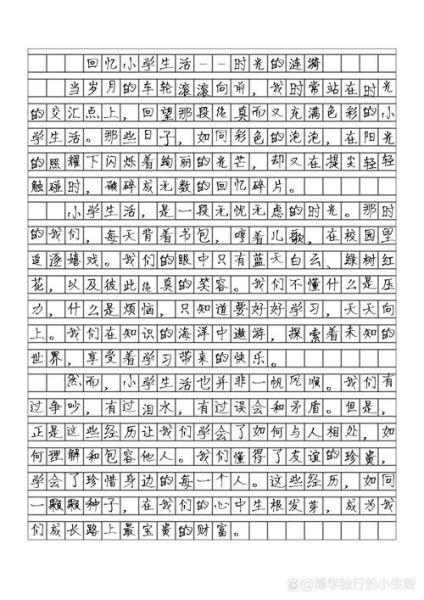 回忆小学生活——时光的涟漪
当岁月的车轮滚滚向前，我时常站在时光
的交汇点上，回望那段纯真而又充满色彩的小
学生活。那些日子，如同彩色的泡泡，在阳光
的照耀下闪烁着绚丽的光芒，却又在指尖轻轻
触碰时，破碎成无数的回忆碎片。
小学生活，是一段无忧无虑的时光。那时
的我们，每天背着书包，哼着儿歌，在校园里
追逐嬉戏。我们的眼中只有蓝天白云、绿树红
花，以及彼此纯真的笑容。我们不懂什么是压
力，什么是烦恼，只知道要好好学习，天天向
上。我们在知识的海洋中遨游，探索着未知的
世界，享受着学习带来的快乐。
然而，小学生活也并非一帆风顺。我们有
过争吵，有过泪水，有过误会和矛盾。但是，
正是这些经历让我们学会了如何与人相处，如
何理解和包容他人。我们懂得了友谊的珍贵，
学会了珍惜身边的每一个人。这些经历，如同
一颗颗种子，在我们的心中生根发芽，成为我
们成长路上最宝贵的财富。
@博学独行的小生呀